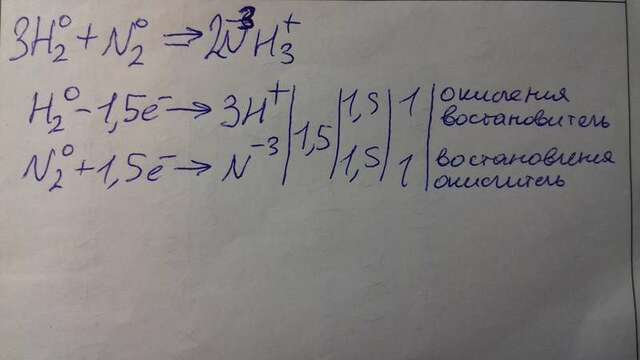 3H₂⁰ + N₂⁰ ⇒ 2N⁻³H₃⁺
H₂⁰ - 1,5e⁻ → 3H⁺ | 1,5 | 1 | окисления восстановитель
N₂⁰ + 1,5e⁻ → N⁻³ | 1,5 | 1,5 | 1 | востановления окислитель